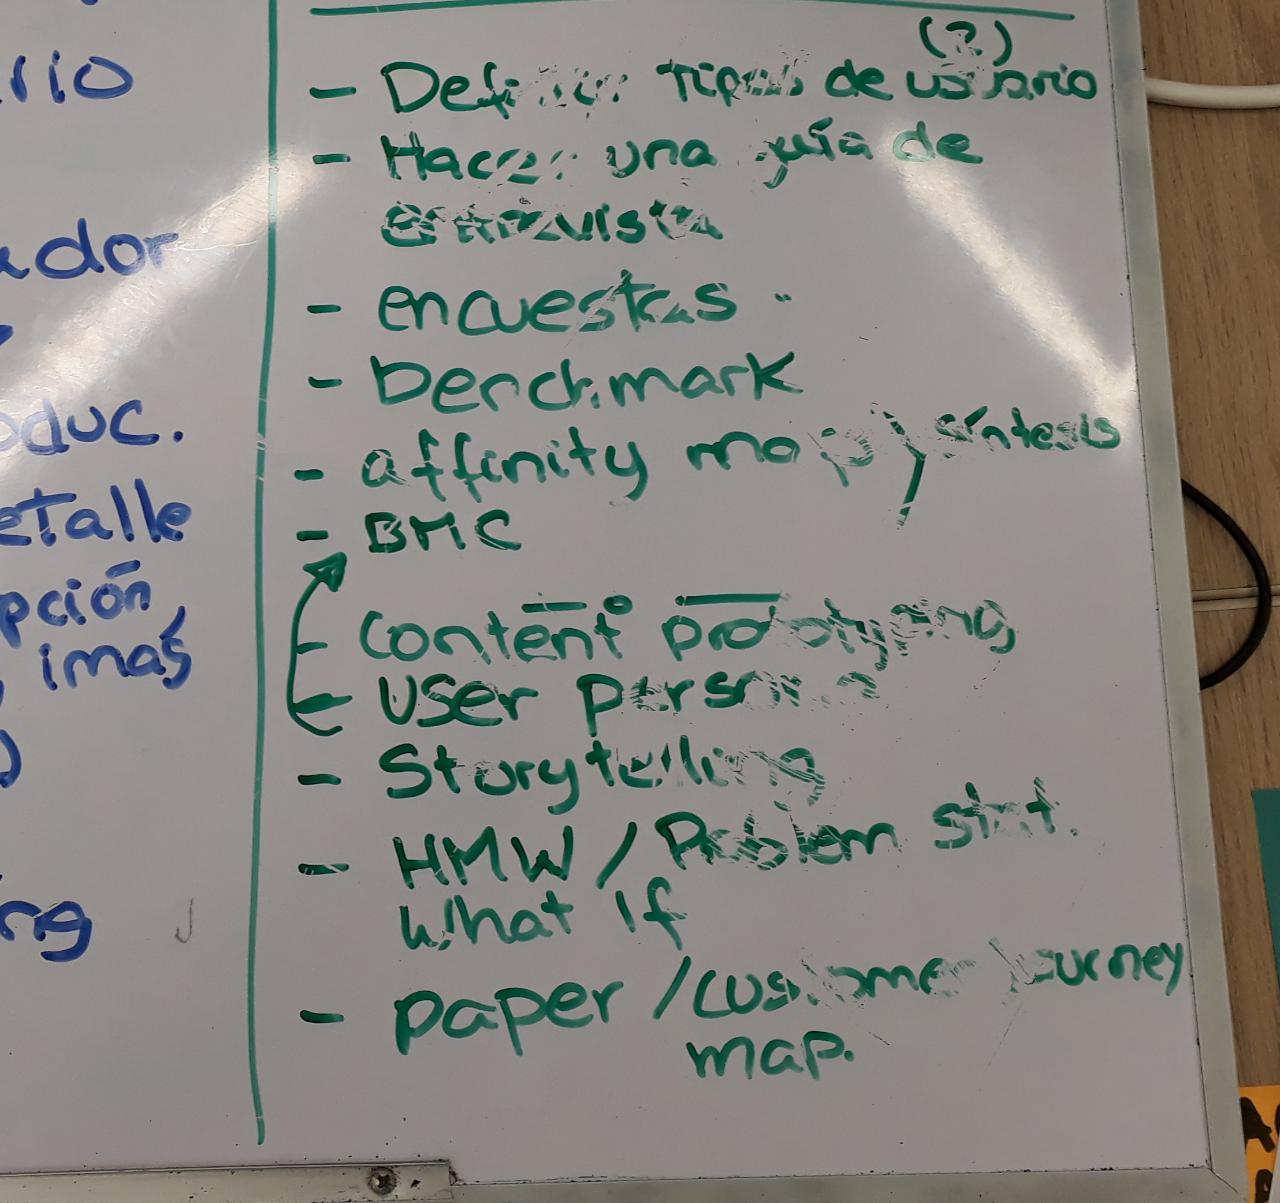 rio
ador
oduc.
etalle
pción,
, imas
ng
(2)
- Definir Tipos de usuario
- Hacer una guía de
entrevista
- encuestas
- benchmark
- affinity map y síntesis
- BMC
- Content prototyping
- user persona
- Storytelling
- HMW / Problem stat.
What if
- paper / customer journey
map.